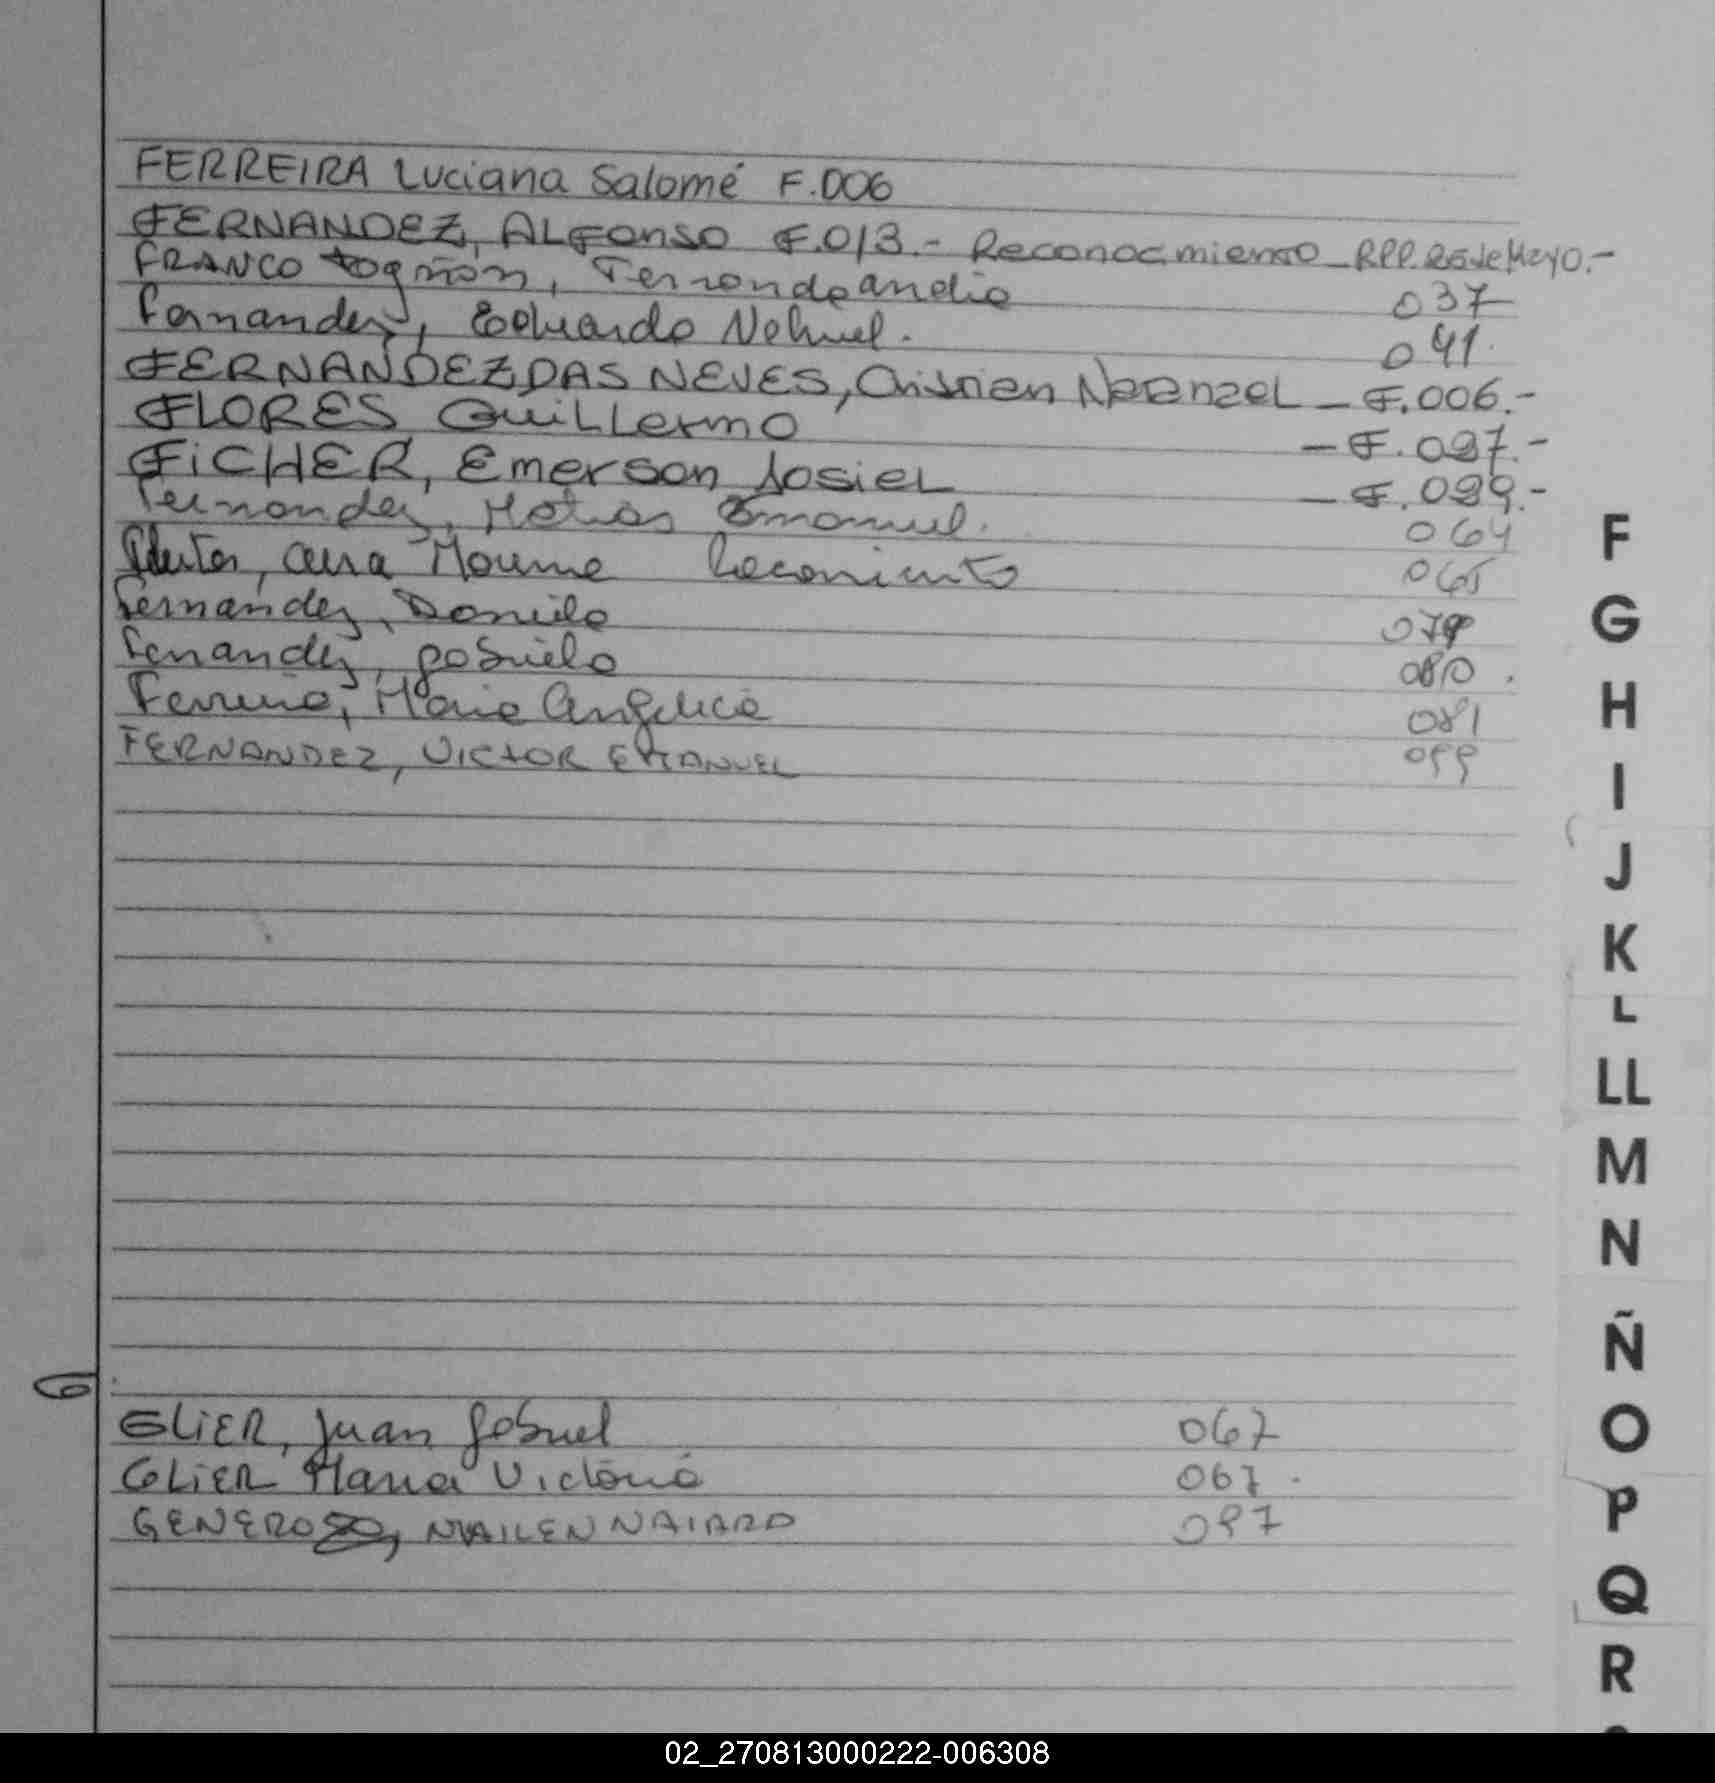 FERREIRA Luciana Salomé F.006
FERNANDEZ, ALFonso F.013.- Reconocimiento - RPP. 25 de Mayo.-
FRANCO Fernanda 037
Fernandez, Eduardo Nahuel. 041.
FERNANDEZ DAS NEVES, Cristian - F.006.-
FLORES GuiLLermo - F.027.-
FiCHER, Emerson JosieL - F.029.-
Fernandez, Matias Emanuel. 064
065
Fernandez, Daniela
Fernandez, Gabriela 080.
Ferreira, Maria Angelica 081
FERNANDEZ, VICTOR EMANUEL 099
G
GLiER, Juan Gabriel 067
GLiER Maria Victoria 067.
GENEROSO, MAILEN NAIARA 097
F
G
H
I
J
K
L
LL
M
N
Ñ
O
P
Q
R
02_270813000222-006308